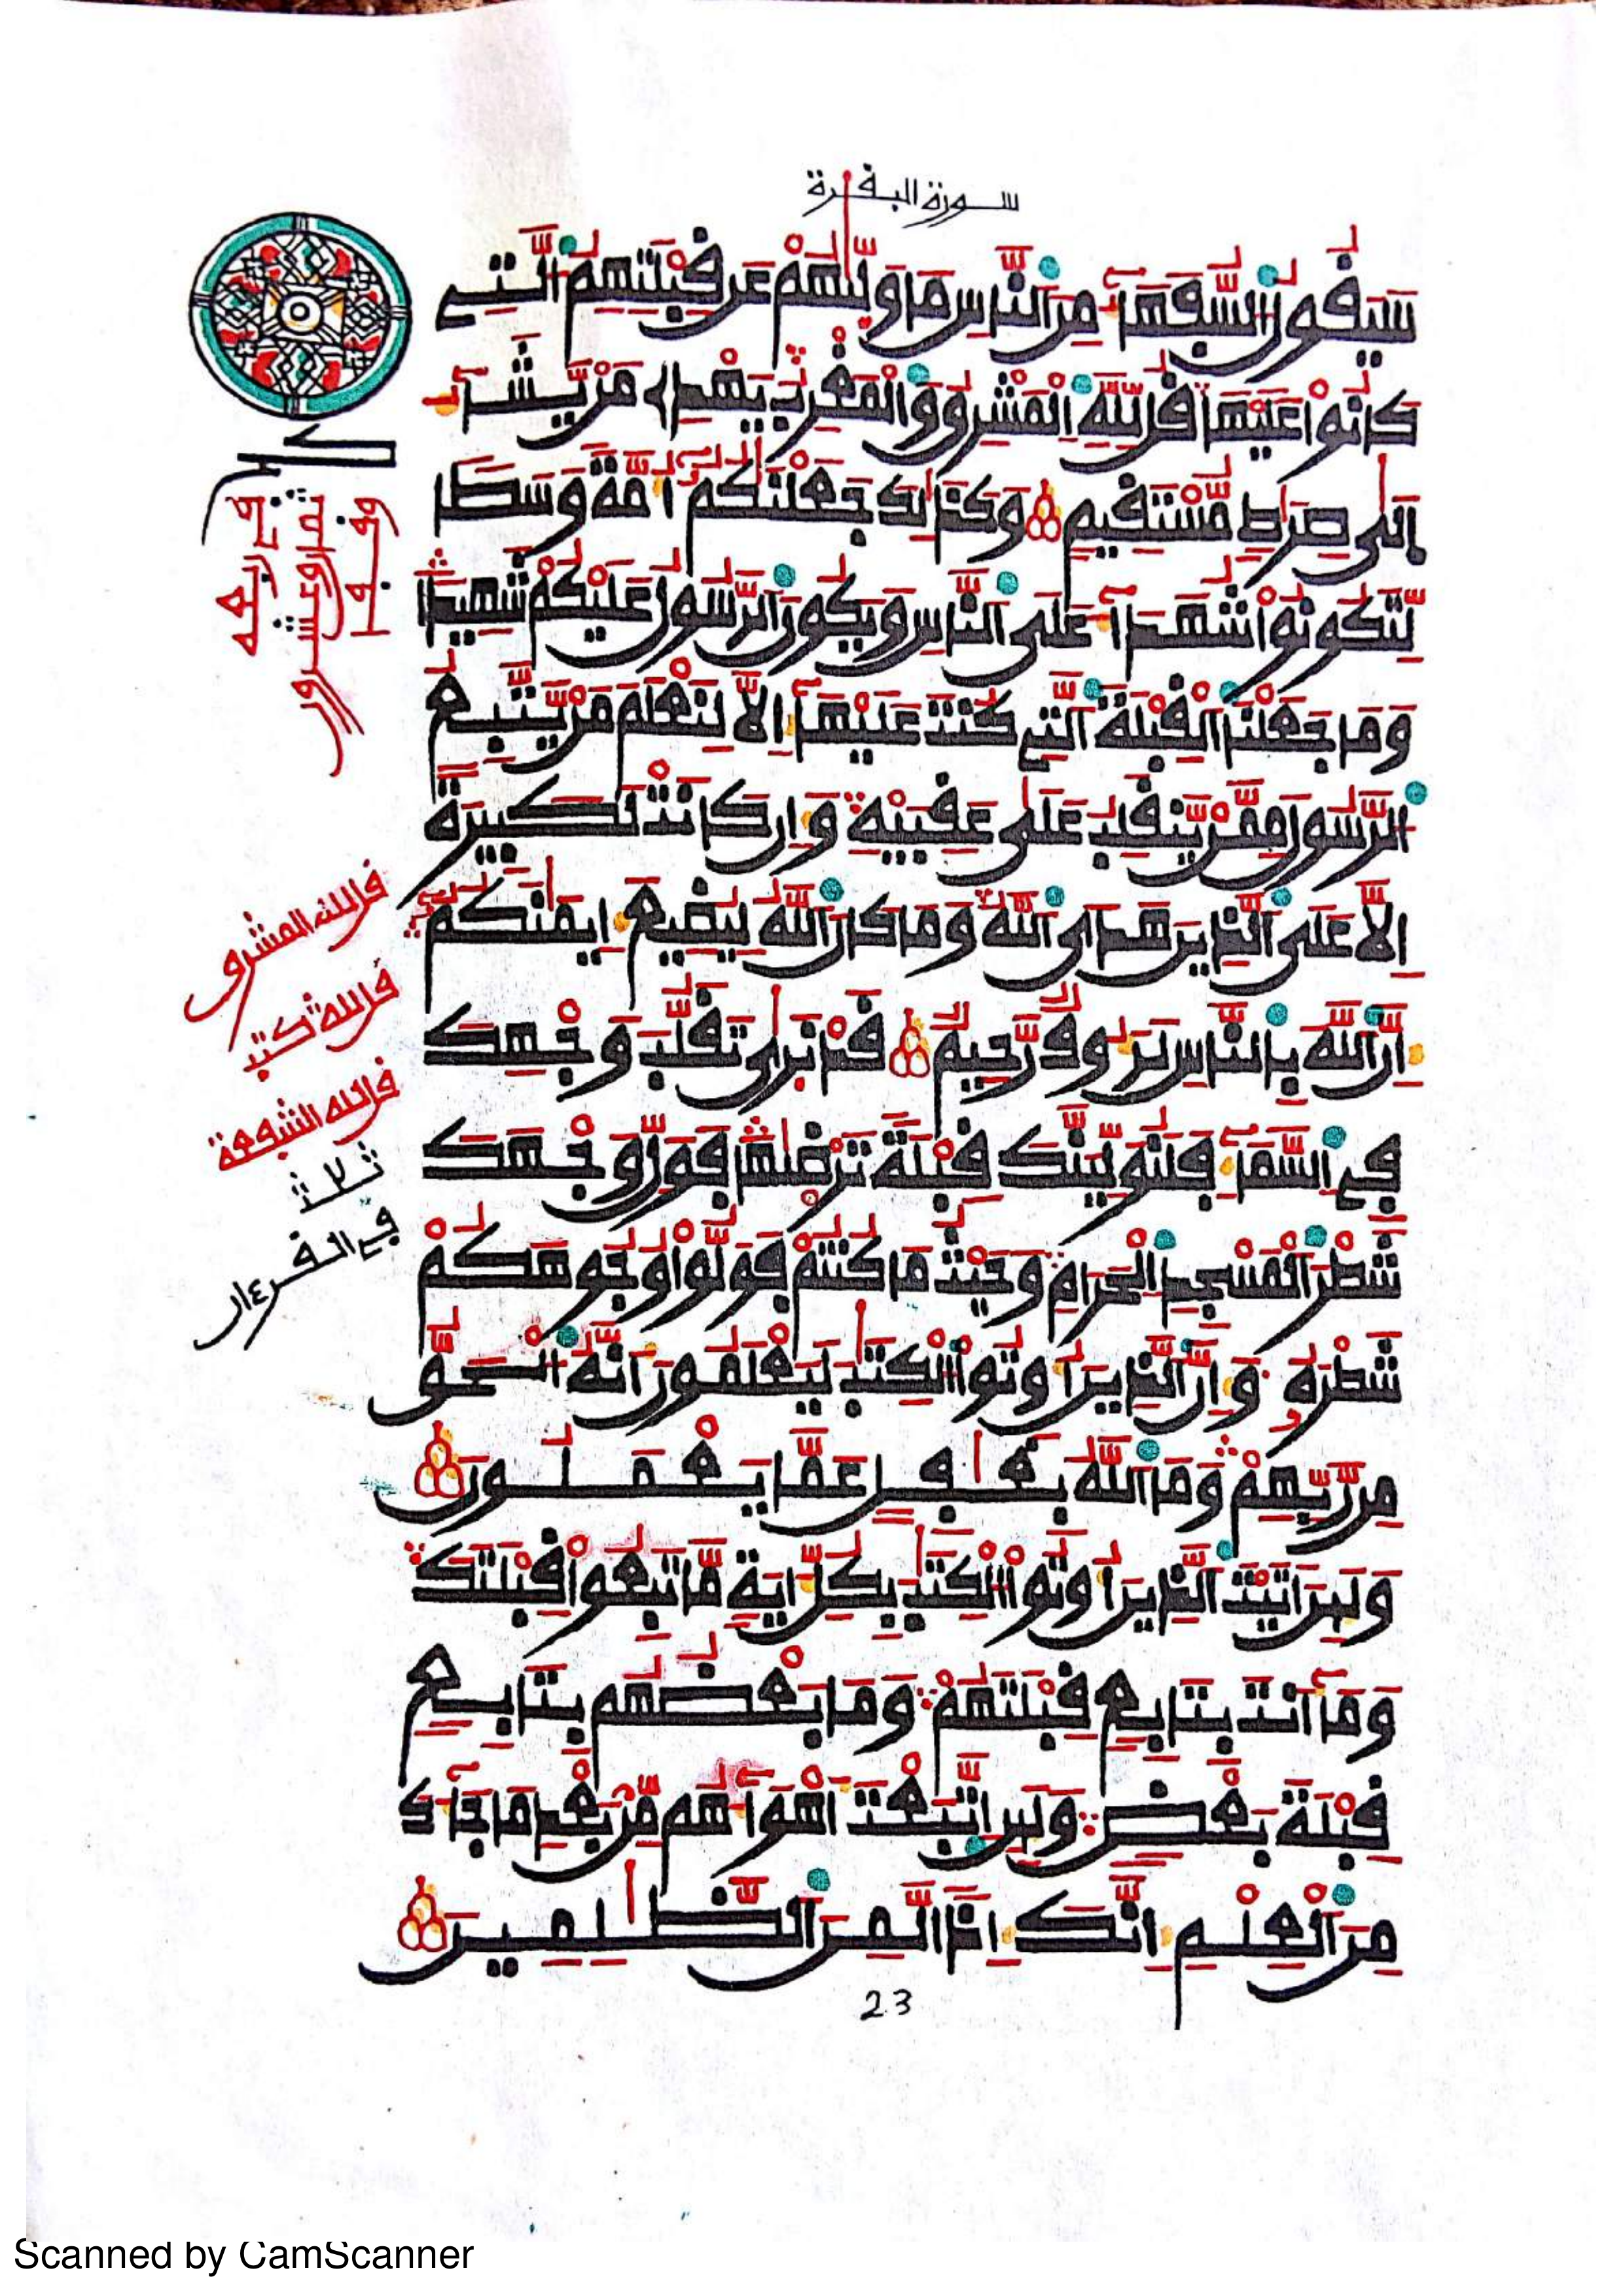 سورة البقرة
سَيَقُولُ اَ۬لسُّفَهَآءُ مِنَ اَ۬لنَّاسِ مَا وَلّٰىٰهُمْ عَن قِبْلَتِهِمُ اُ۬لتِے
كَانُواْ عَلَيْهَا قُل لِّلهِ اِ۬لْمَشْرِقُ وَالْمَغْرِبُ يَهْدِے مَنْ يَّشَآءُ
اِلَىٰ صِرَٰطٖ مُّسْتَقِيمٖ وَكَذَٰلِكَ جَعَلْنَٰكُمُۥٓ أُمَّةٗ وَسَطاٗ
لِّتَكُونُواْ شُهَدَآءَ عَلَى اَ۬لنَّاسِ وَيَكُونَ اَ۬لرَّسُولُ عَلَيْكُمْ شَهِيداٗ
وَمَا جَعَلْنَا اَ۬لْقِبْلَةَ اَ۬لتِے كُنتَ عَلَيْهَآ إِلَّا لِنَعْلَمَ مَنْ يَّتَّبِعُ
اُ۬لرَّسُولَ مِمَّنْ يَّنقَلِبُ عَلَىٰ عَقِبَيْهِ وَإِن كَانَتْ لَكَبِيرَةً
اِلَّا عَلَى اَ۬لذِينَ هَدَى اَ۬للَّهُ وَمَا كَانَ اَ۬للَّهُ لِيُضِيعَ إِيمَٰنَكُمُۥٓ
إِنَّ اَ۬للَّهَ بِالنَّاسِ لَرَءُوفٞ رَّحِيمٞ قَدْ نَرَىٰ تَقَلُّبَ وَجْهِكَ
فِے اِ۬لسَّمَآءِ فَلَنُوَلِّيَنَّكَ قِبْلَةٗ تَرْضَىٰهَا فَوَلِّ وَجْهَكَ
شَطْرَ اَ۬لْمَسْجِدِ اِ۬لْحَرَامِ وَحَيْثُ مَا كُنتُمْ فَوَلُّواْ وُجُوهَكُمْ
شَطْرَهُۥ وَإِنَّ اَ۬لذِينَ أُوتُواْ اُ۬لْكِتَٰبَ لَيَعْلَمُونَ أَنَّهُ اُ۬لْحَقُّ
مِن رَّبِّهِمْ وَمَا اَ۬للَّهُ بِغَٰفِلٍ عَمَّا يَعْمَلُونَ
وَلَئِنَ اَتَيْتَ اَ۬لذِينَ أُوتُواْ اُ۬لْكِتَٰبَ بِكُلِّ ءَايَةٖ مَّا تَبِعُواْ قِبْلَتَكَ
وَمَآ أَنتَ بِتَابِعٖ قِبْلَتَهُمْ وَمَا بَعْضُهُم بِتَابِعٖ
قِبْلَةَ بَعْضٖ وَلَئِنِ اِ۪تَّبَعْتَ أَهْوَآءَهُم مِّنۢ بَعْدِ مَا جَآءَكَ
مِنَ اَ۬لْعِلْمِ إِنَّكَ إِذاٗ لَّمِنَ اَ۬لظَّٰلِمِينَ
قل لله المشرق
قل لله كتب
قل لله الشفعة
ثلاث
23
Scanned by CamScanner